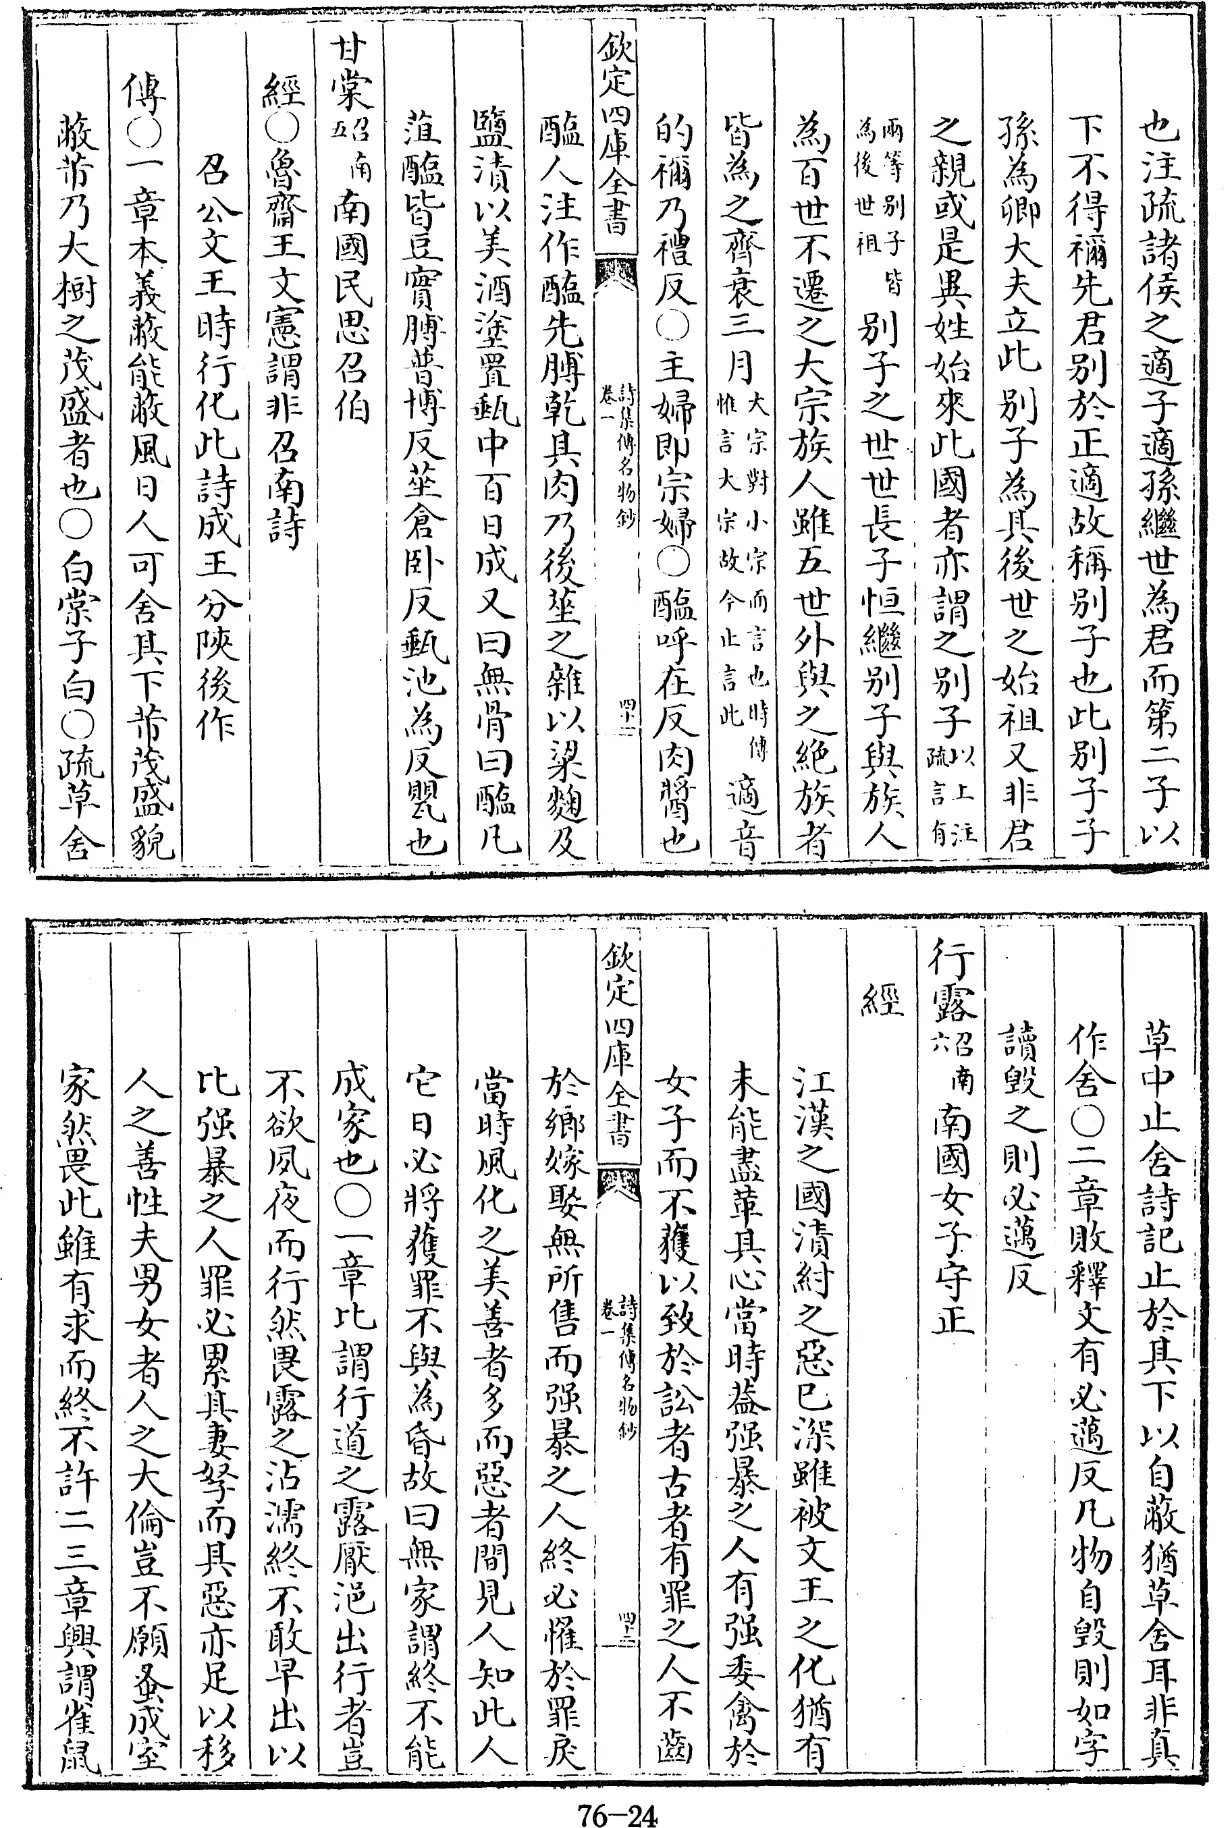 也注疏諸侯之適子適孫繼世為君而第二子以
下不得禰先君別於正適故稱別子也此別子子
孫為卿大夫立此別子為其後世之始祖又非君
之親或是異姓始來此國者亦謂之別子以上注疏言有
兩等別子皆為後世祖別子之世世長子恒繼別子與族人
為百世不遷之大宗族人雖五世外與之絶族者
皆為之齊衰三月大宗對小宗而言也時傳惟言大宗故今止言此適音
的禰乃禮反○主婦即宗婦○醢呼在反肉醬也
欽定四庫全書 詩集傳名物鈔 卷一 四十二
醢人注作醢先膊乾其肉乃後莝之雜以梁麴及
鹽漬以美酒塗置甀中百日成又曰無骨曰醢凡
菹醢皆豆實膊普博反莝倉卧反甀池為反甖也
甘棠召南五南國民思召伯
經○魯齋王文憲謂非召南詩
召公文王時行化此詩成王分陜後作
傳○一章本義蔽能蔽風日人可舍其下芾茂盛貌
蔽芾乃大樹之茂盛者也○白棠子白○疏草舍
草中止舍詩記止於其下以自蔽猶草舍耳非真
作舍○二章敗釋文有必邁反凡物自毀則如字
讀毀之則必邁反
行露召南六南國女子守正
經
江漢之國漬紂之惡已深雖被文王之化猶有
未能盡革其心當時葢强暴之人有强委禽於
女子而不獲以致於訟者古者有罪之人不齒
欽定四庫全書 詩集傳名物鈔 卷一 四十三
於鄉嫁娶無所售而强暴之人終必惟於罪戾
當時風化之美善者多而惡者間見人知此人
它日必將獲罪不與為昏故曰無家謂終不能
成家也○一章比謂行道之露厭浥出行者豈
不欲夙夜而行然畏露之沾濡終不敢早出以
比强暴之人罪必累其妻孥而其惡亦足以移
人之善性夫男女者人之大倫豈不願蚤成室
家然畏此雖有求而終不許二三章興謂雀鼠
76-24